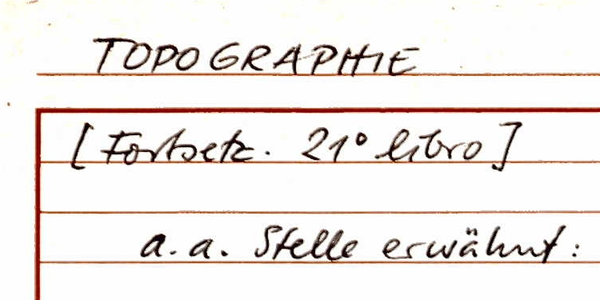 TOPOGRAPHIE
[Fortsetz. 21° libro]
a.a. Stelle erwähnt: